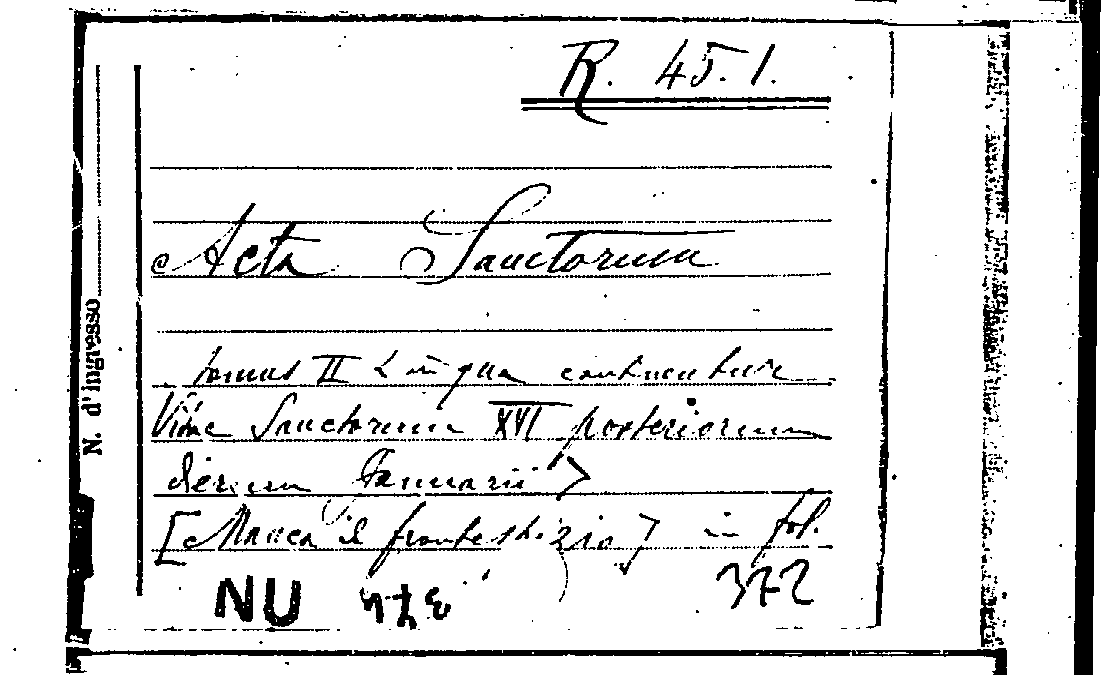 R. 45.1.
Acta Sanctorum
tomus II < in qua continentur
Vitae Sanctorum XVI posteriorum
dierum Januarii >
[Manca il frontespizio] in fol.
NU
372
N. d'ingresso